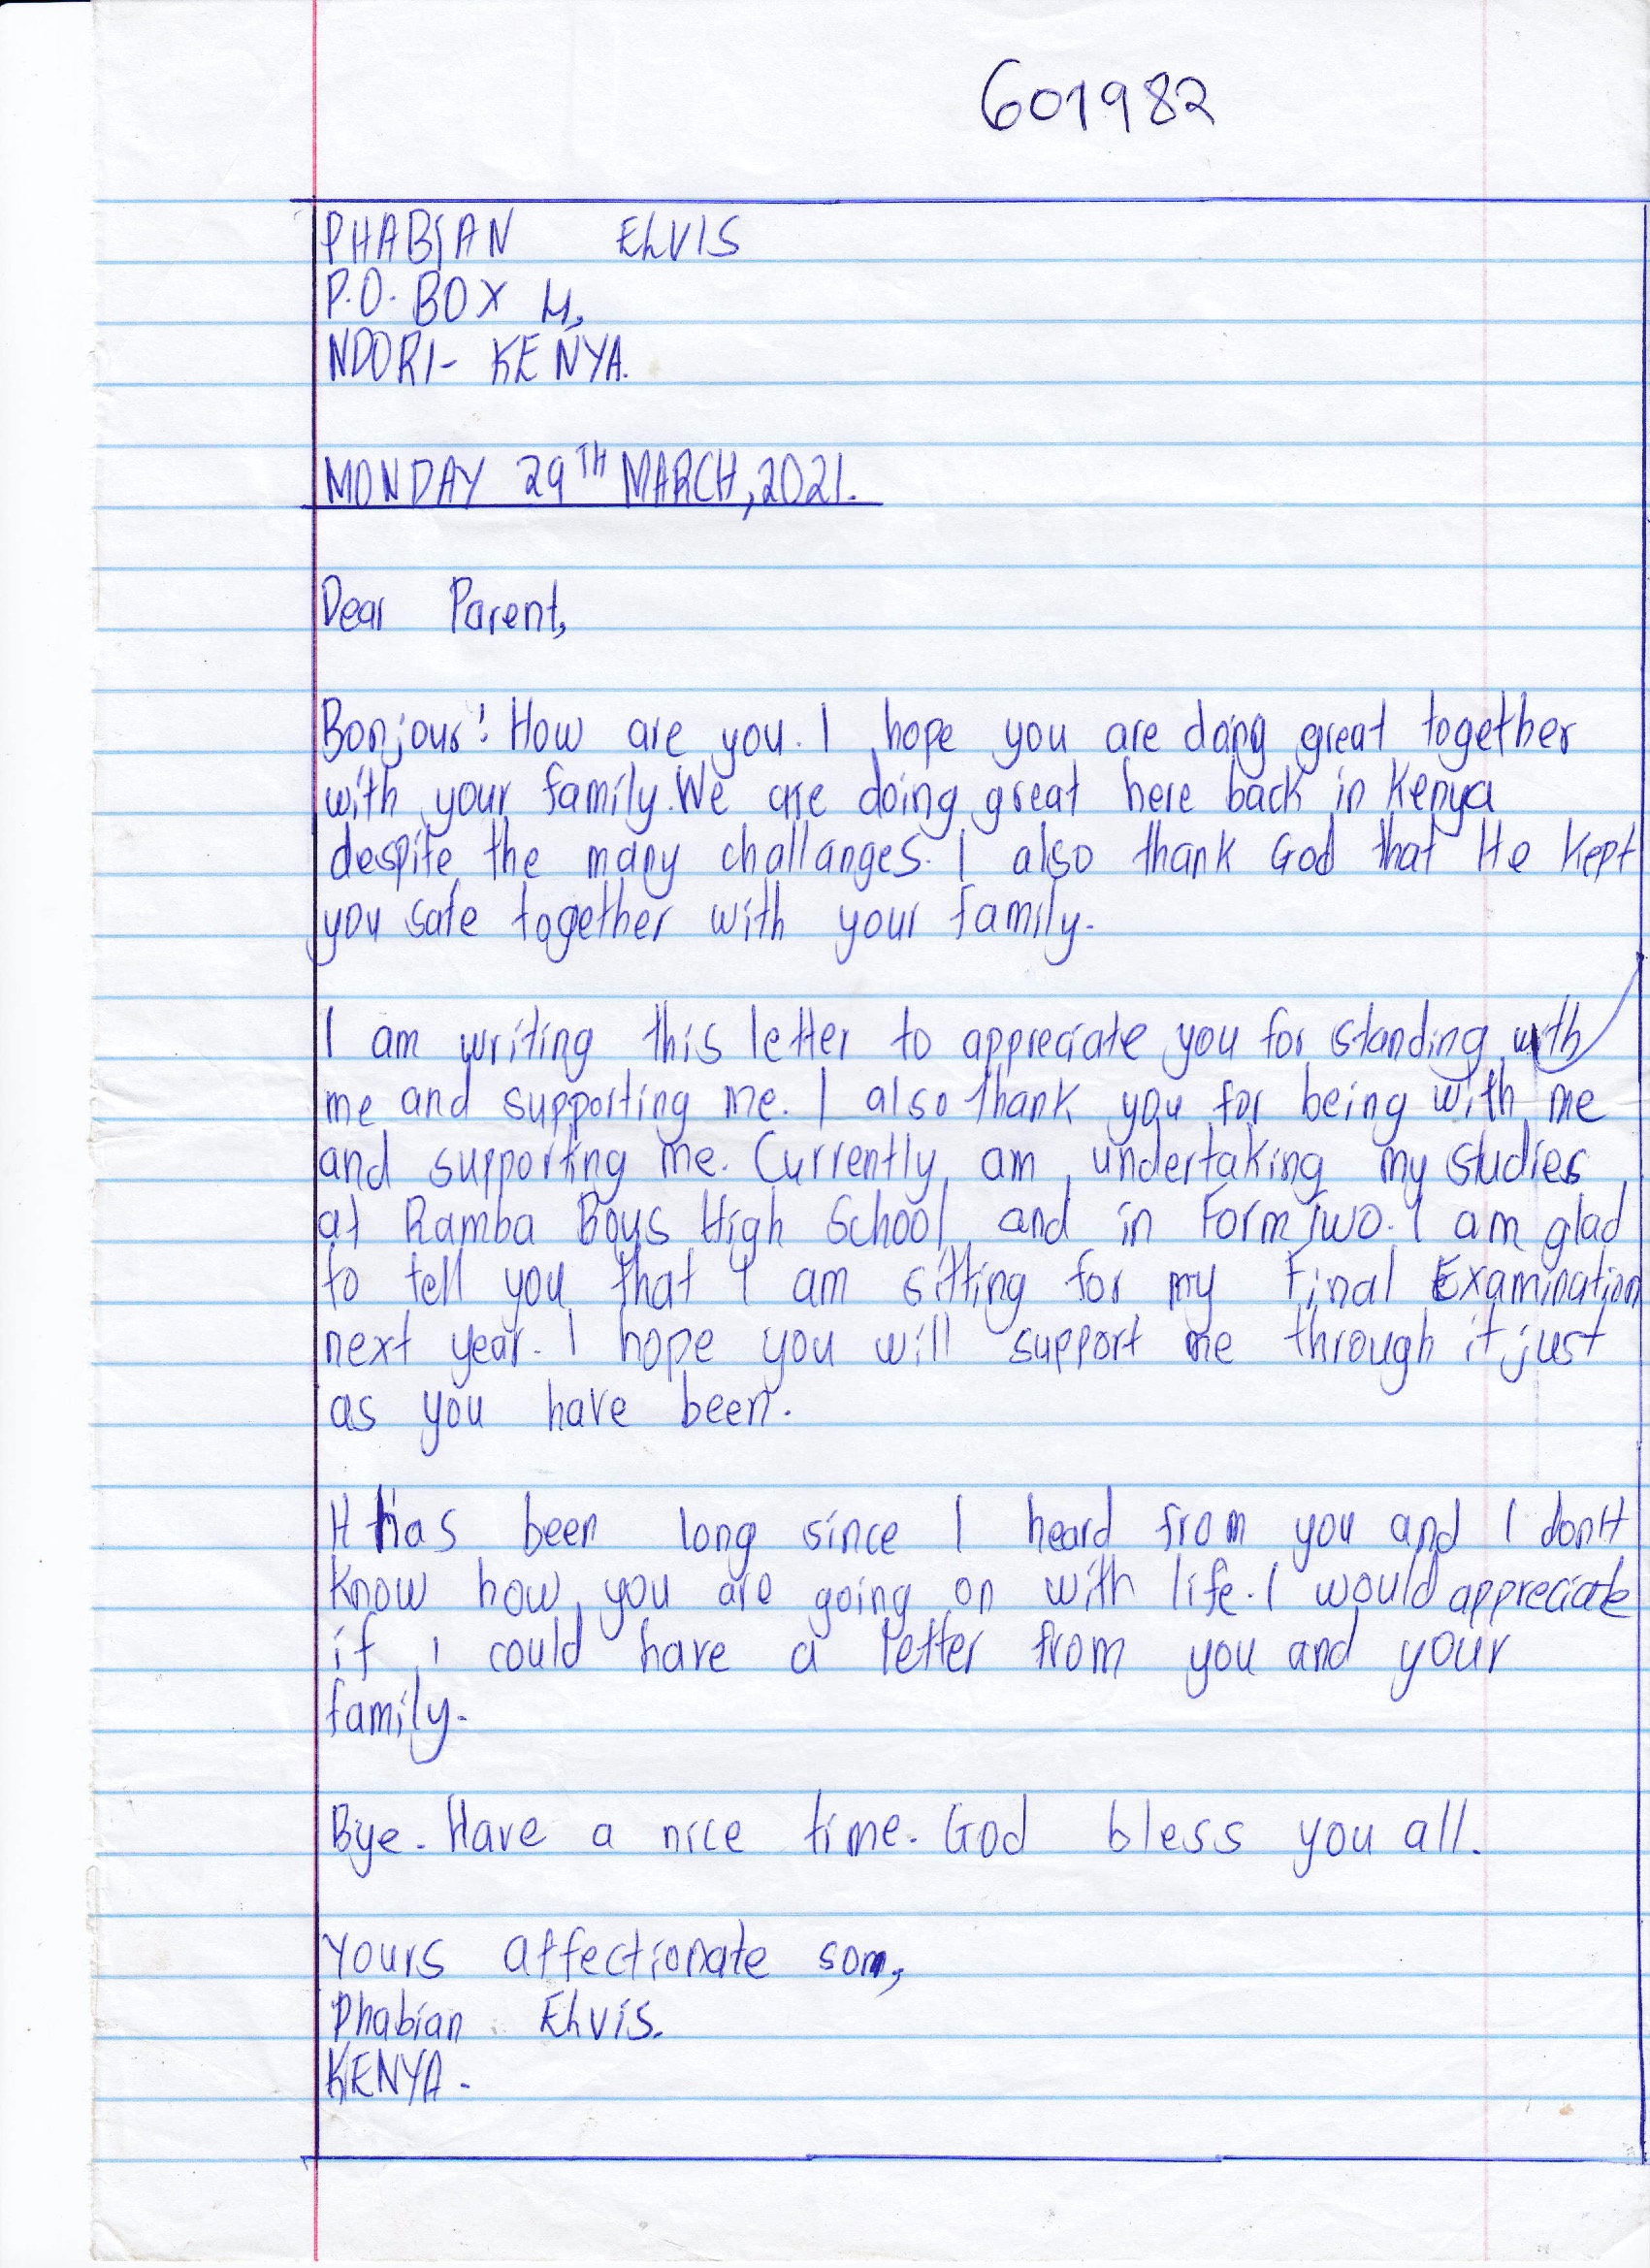 601982
PHABIAN ELVIS
P.O. BOX 4,
NDORI- KENYA.
MONDAY 29TH MARCH, 2021.
Dear Parent,
Bonjour! How are you. I hope you are doing great together
with your family. We are doing great here back in Kenya
despite the many challanges. I also thank God that He kept
you safe together with your family.
I am writing this letter to appreciate you for standing with
me and supporting me. I also thank you for being with me
and supporting me. Currently am undertaking my studies
at Ramba Boys High School and in Form Two. I am glad
to tell you that I am sitting for my Final Examination
next year. I hope you will support me through it just
as you have been.
It has been long since I heard from you and I don't
know how you are going on with life. I would appreciate
if i could have a letter from you and your
family.
Bye. Have a nice time. God bless you all.
Yours affectionate son,
Phabian Elvis.
KENYA.